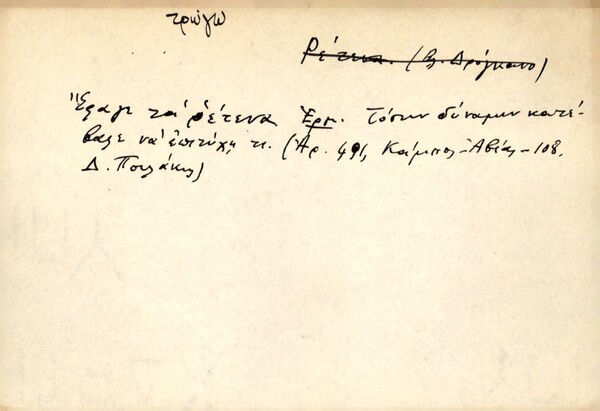 τρώγω
Ρέτενα. (βλ. Δρόγκανο)
Ἔφαγε τὰ ρέτενα Ἑρμ. Τόσην δύναμιν κατέ-
βαλε νὰ ἐπιτύχῃ τι. (Ἀρ. 491, Κάμπος-Ἀβίας-108,
Δ. Πουλάκης)